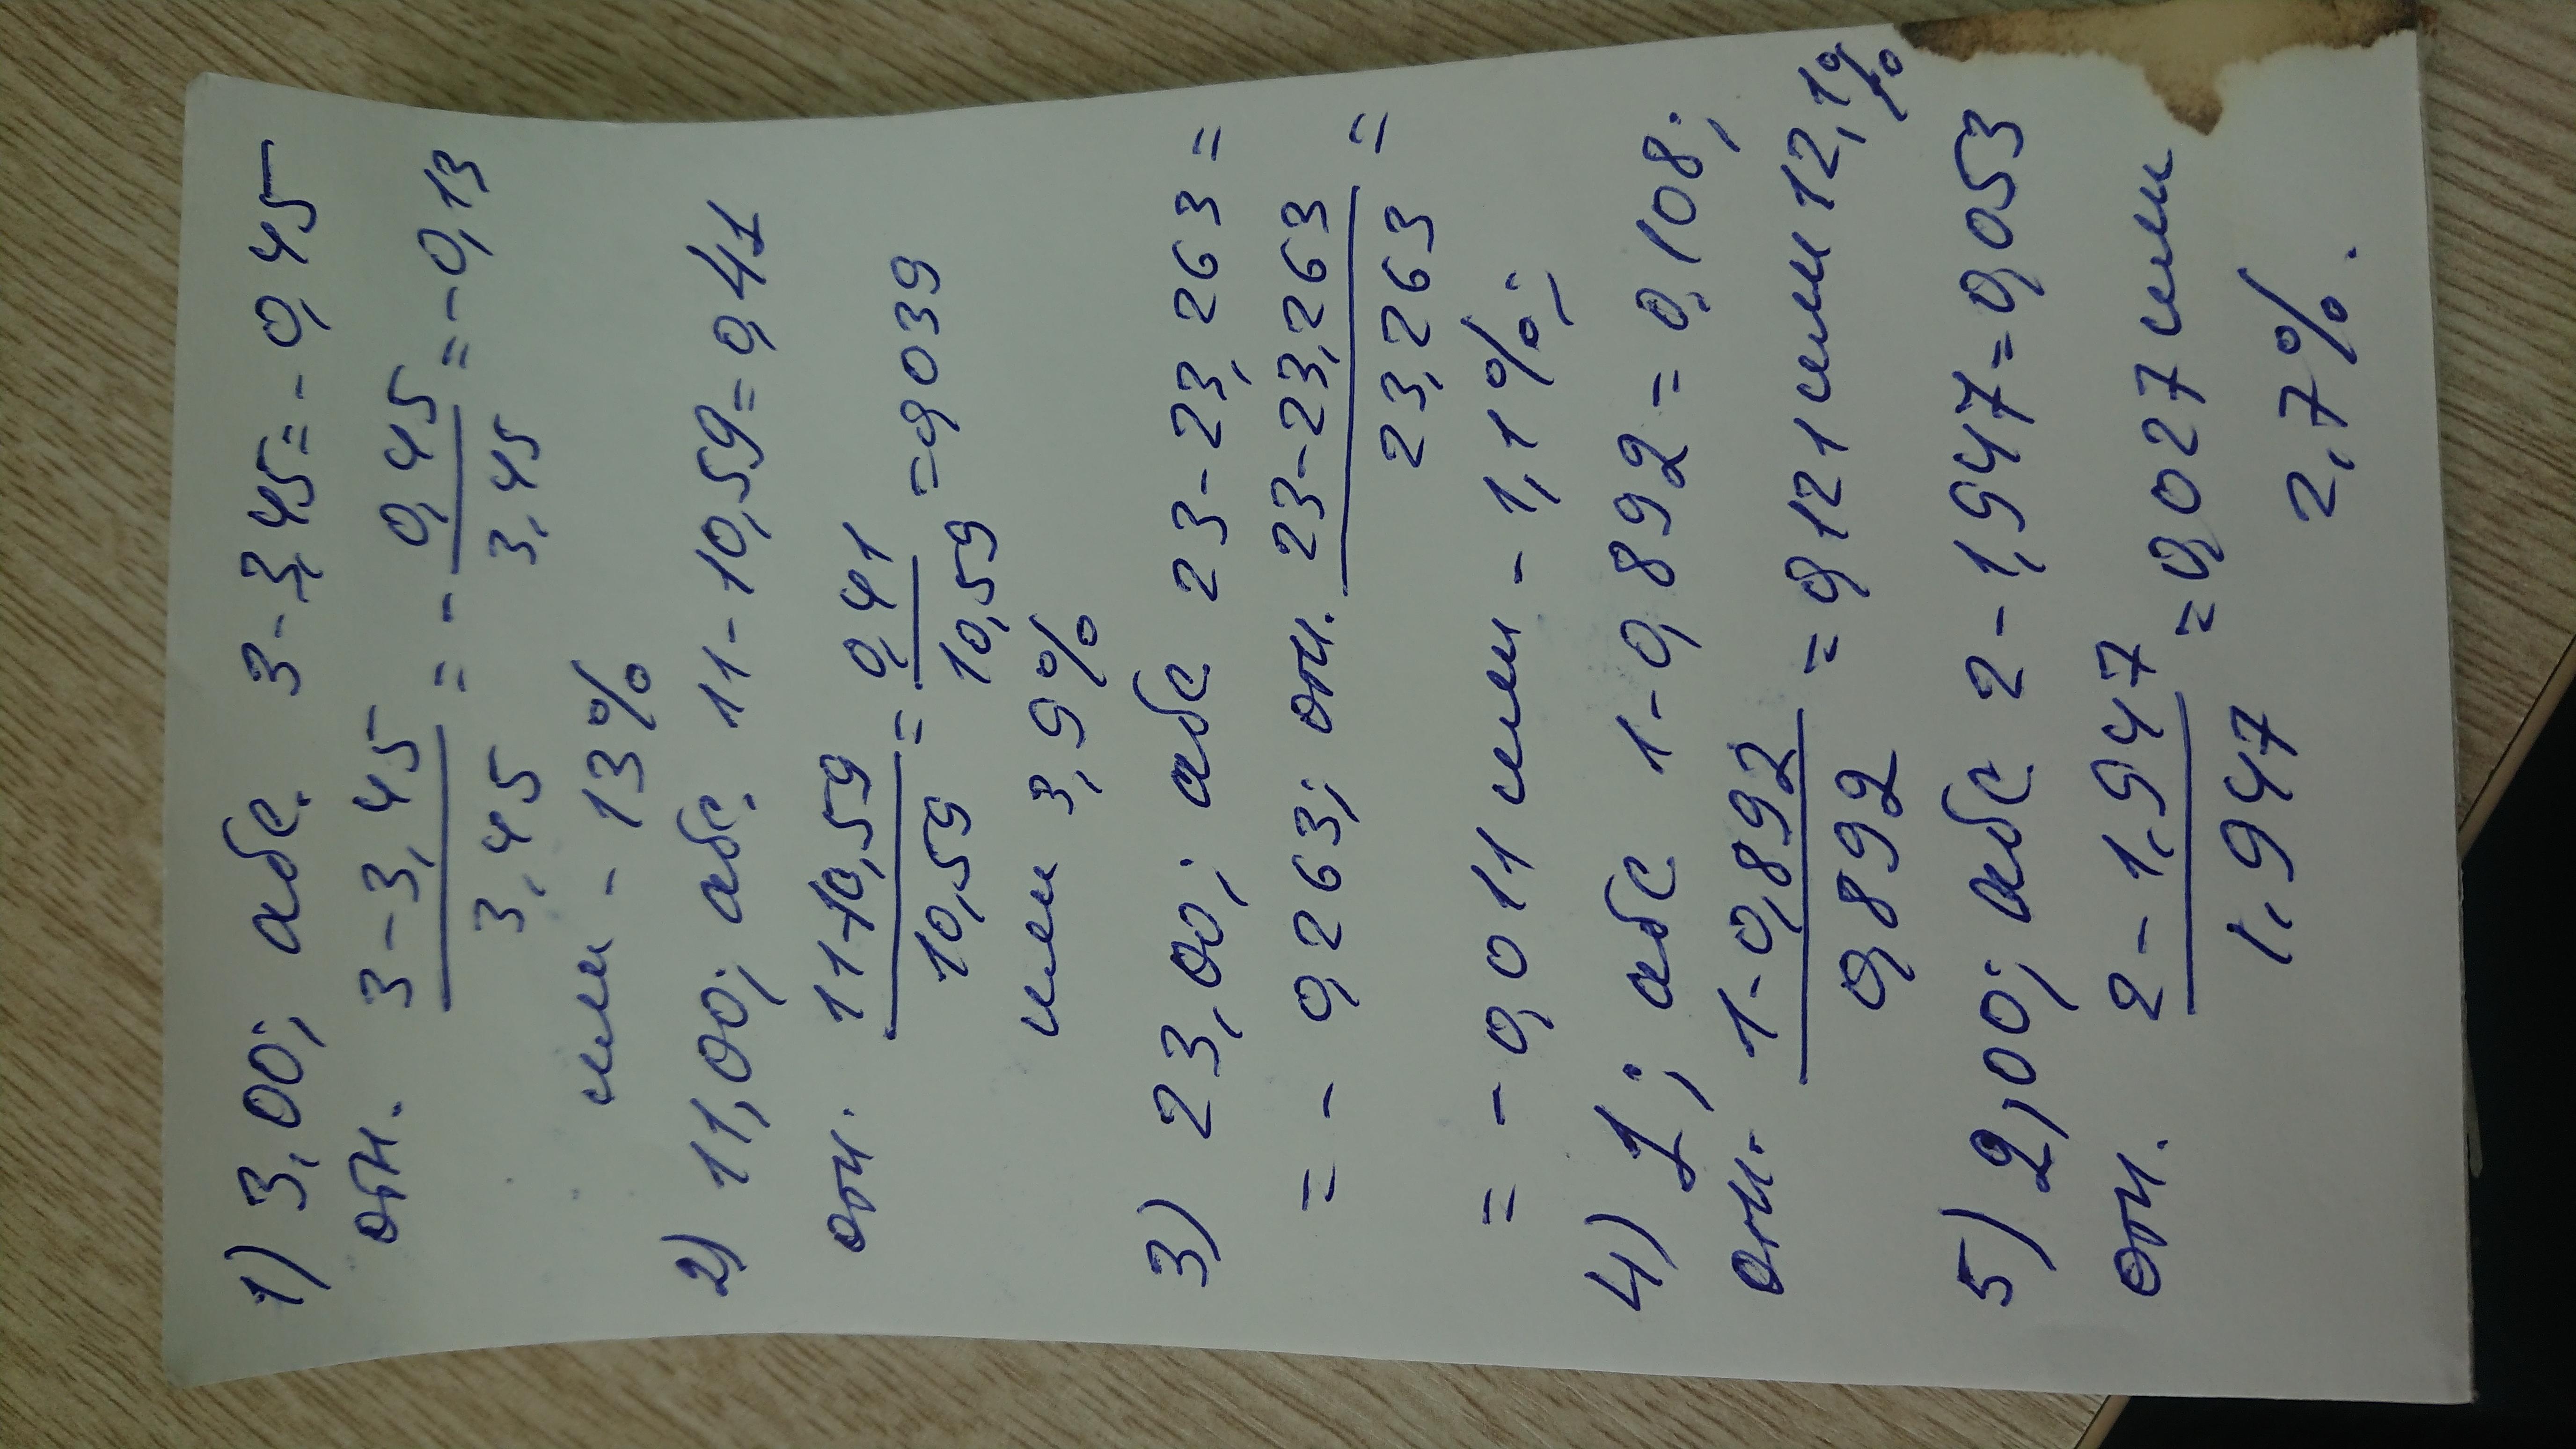 1) 3,00; абс. 3-3,45=-0,45
отн. 3-3,45/3,45 = - 0,45/3,45 = -0,13
или -13%
2) 11,00; абс. 11-10,59=0,41
отн. 11-10,59/10,59 = 0,41/10,59 = 0,039
или 3,9%
3) 23,00; абс 23-23,263=
= - 0,263; отн. 23-23,263/23,263 =
= - 0,011 или - 1,1%;
4) 1; абс 1-0,892=0,108;
отн. 1-0,892/0,892 = 0,121 или 12,1%
5) 2,00; абс 2-1,947=0,053
отн. 2-1,947/1,947 = 0,027 или
2,7%.